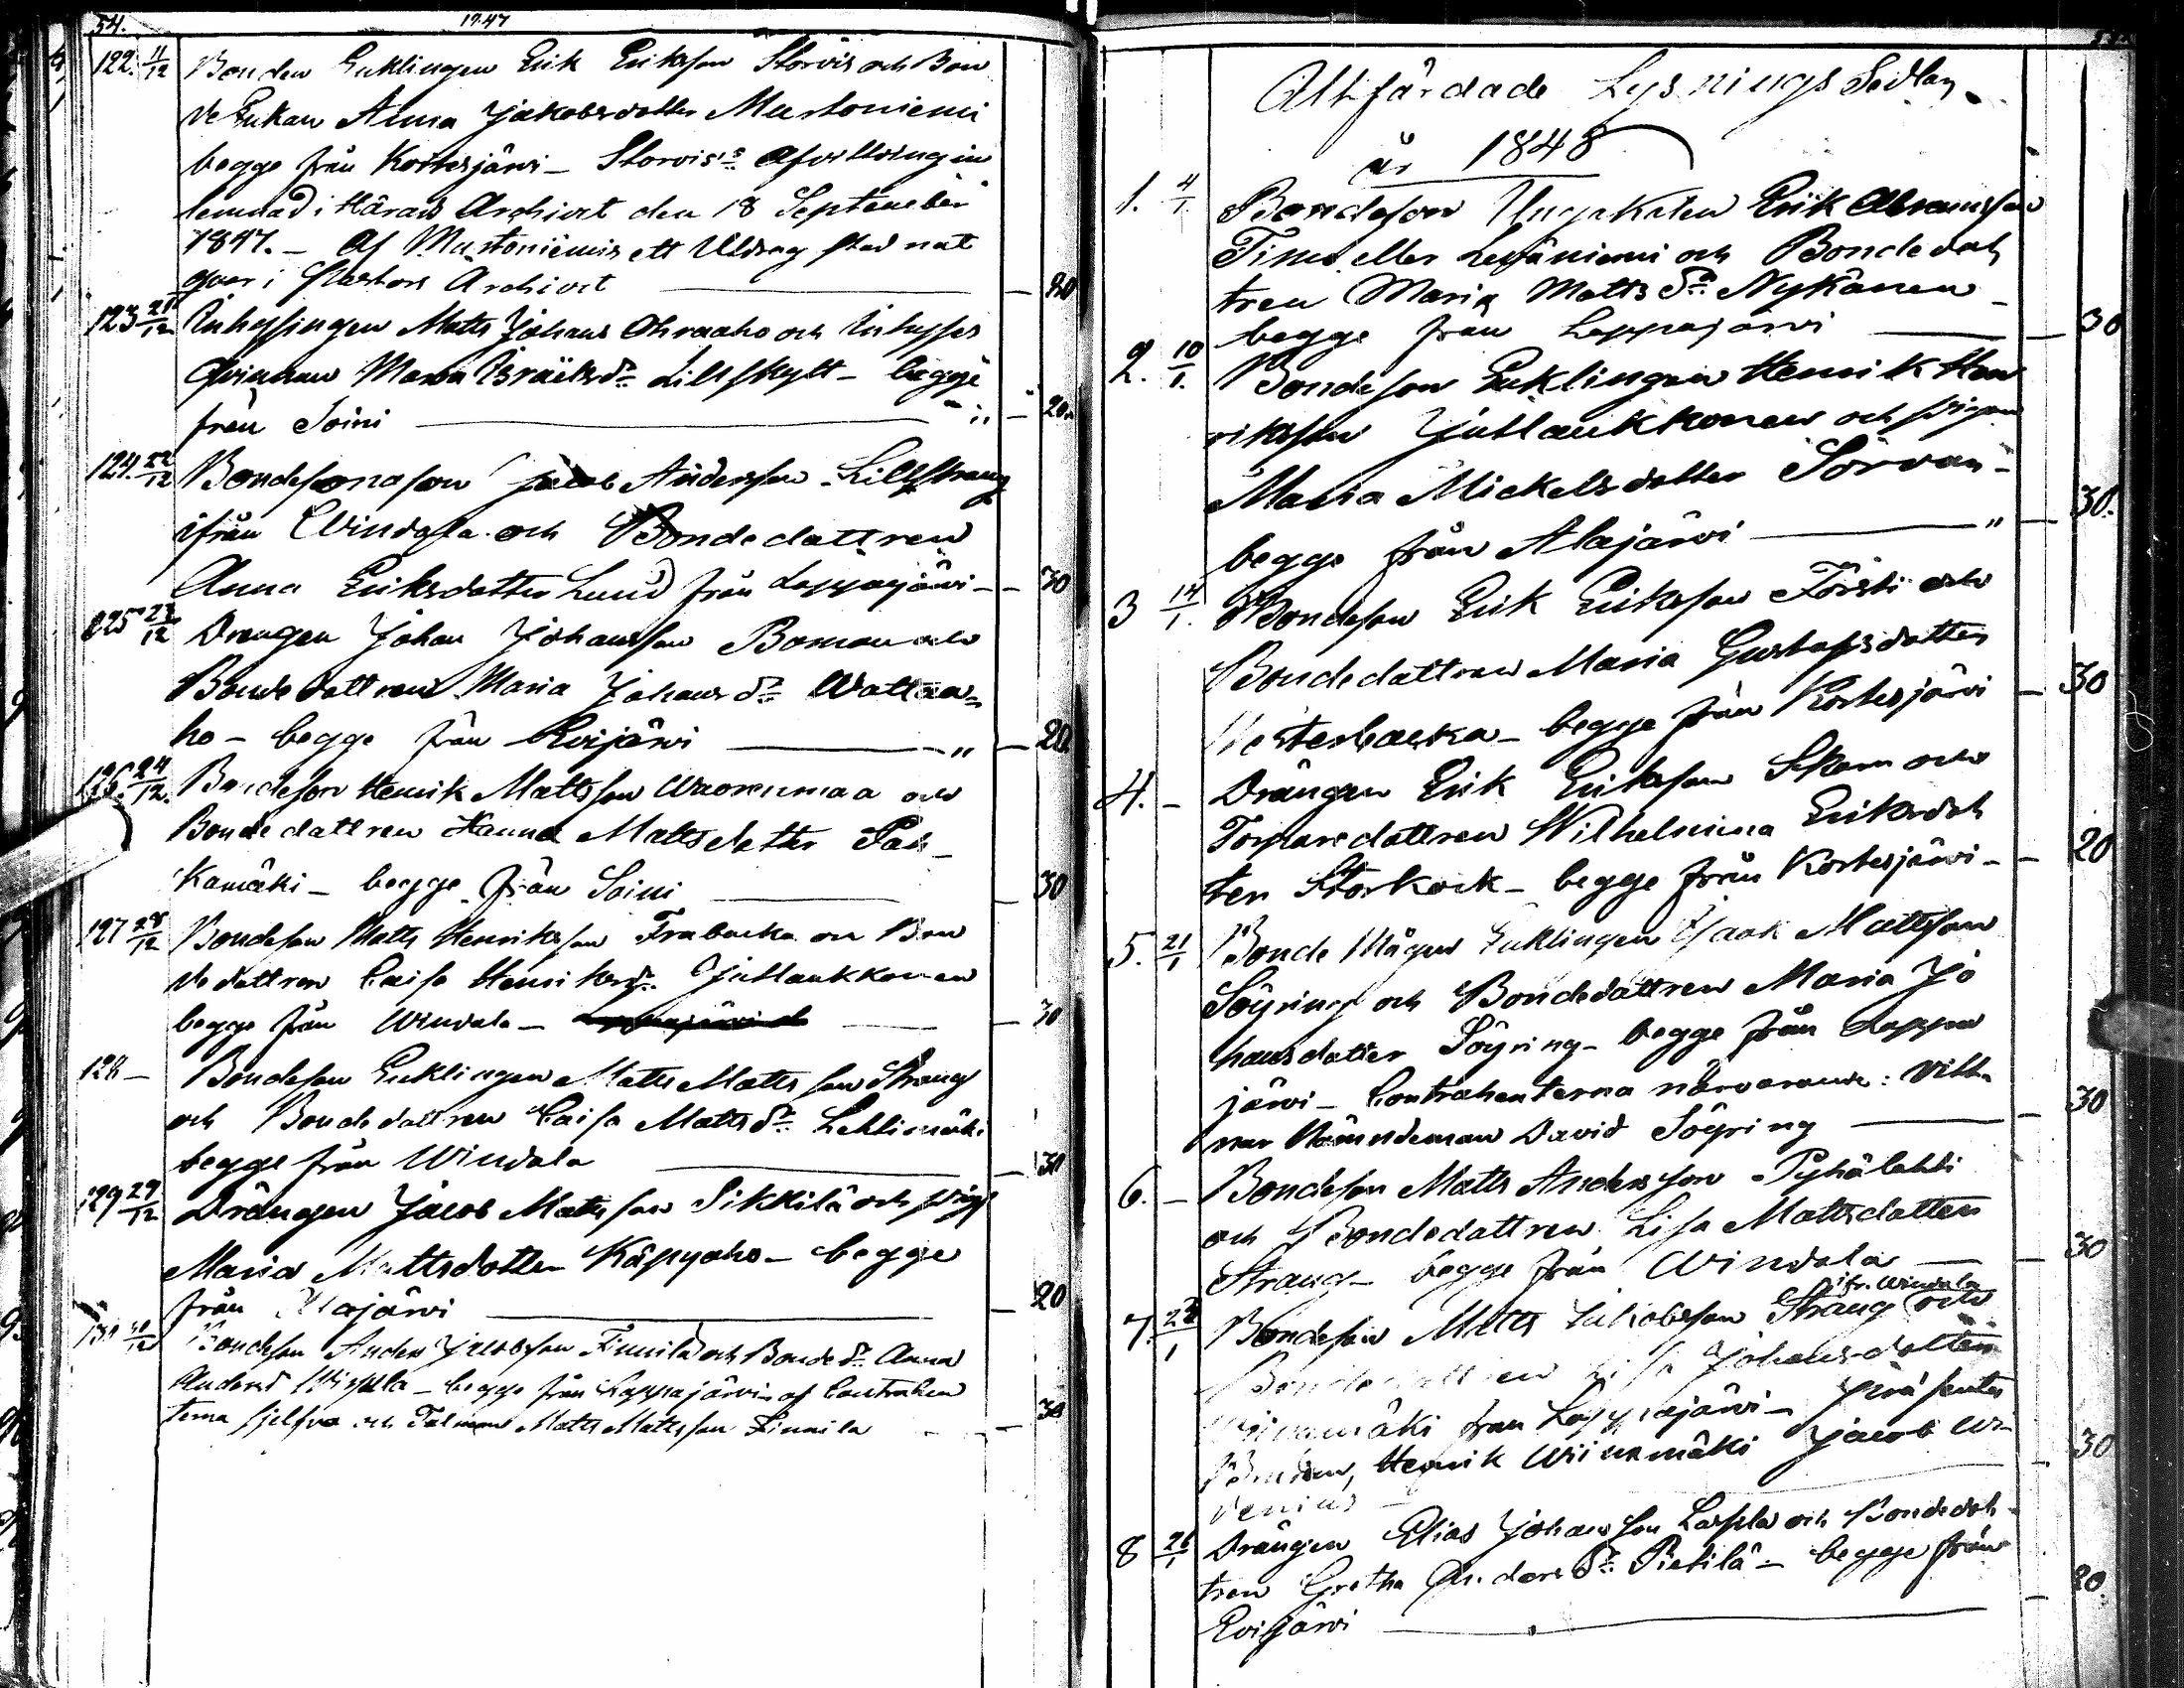 54.
1847
122. 11/12 Bonden Enklingen Erik Eriksson Storvis och Bon
de Enkan Anna Jakobsdotter Mustoniemi
begge från Kortesjärvi – Storvis's Afvittring in
lemnad i Härads Archivet den 18 September
1847. – Af Mustoniemis ett Utdrag stad nat
qvar i Pastors Archivet — 20
123 21/12 Inhysingen Matts Johans Ohraaho och Inhyses
Qvinnan Maria Israelsdr Lillskytt – begge
från Soini — 20.
124. 22/12 Bondesonason Jacob Andersson Lillstrang
ifrån Windala och Bondedattren
Anna Eriksdotter Lund från Lappajärvi – 30
125 23/12 Drengen Johan Johansson Boman och
Bonde dattren Maria Johansdr Wattaa=
ho – begge från Evijärvi — " — 20.
126. 24/12. Bondeson Henrik Mattsson Waorenmaa och
Bonde dattren Hanna Mattsdotter Pau-
kamäki – begge från Soini — 30
127 28/12 Bondeson Matts Henriksson Frabacka och Bon
de dattren Caisa Henriksdr. Jutlaukkonen
begge från Windala — 30
128 – Bondeson Enklingen Matts Mattsson Strang
och Bonde dattren Caisa Mattsdr. Lehtimäki
begge från Windala — 30
129 29/12 Drängen Jacob Mattsson Sikkilä och pig
Maria Mattsdotter Käpyaho – begge
från Alajärvi — 20
130 30/12 Bondeson Anders Jacobsson Finnilä och Bonde dr Anna
Andersd Wispala – begge från Lappajärvi – af Contrahen
terna sjelfva och Tolman Matts Mattsson Finnila — 30
Attfärdade Lysnings Sedlar
år 1848
1. 4/1. Bondeson Ungkarlen Erik Abramsson
Timo eller Lepäniemi och Bondedot
tren Maria Mattsdr. Nykänen –
begge från Lappajärvi — 30
2. 10/1. Bondeson Enklingen Henrik Hen
riksson Jutlaukkonen och pigan
Maria Mickelsdotter Sorvari –
begge från Alajärvi — " — 30.
3 14/1. Bondeson Erik Eriksson Försti och
Bondedattren Maria Gustafsdotter
Westerbacka – begge från Kortesjärvi — 30
4. – Drängen Erik Eriksson Skom och
Torparedattren Wilhelmina Eriksdot
ter Storkock – begge från Kortesjärvi – 20
5. 21/1 Bonde Mågen Enklingen Isaak Mattsson
Söyring och Bondedattren Maria Jo
hansdotter Söyring – begge från Lappa
järvi – Contrahenterna närvarande: Vitt=
nar Nämndeman David Söyring — 30
6. – Bondeson Matts Andersson Pyhälahti
och Bondedattren Lisa Mattsdotter
Strang – begge från Windala — 30
ifr. Windala
7. 24/1 Bondeson Matts Jakobsson Strang och
Bondedattren Lisa Johansdotter
Wiinamäki från Lappajärvi – præsentes
Bonden, Henrik Wiinamäki Jacob Wi-
denius — 30
8 26/1 Drängen Elias Johansson Laspla och Bondedot-
tren Gretha Andersdr. Pietilä – begge från
Evijärvi — 20.